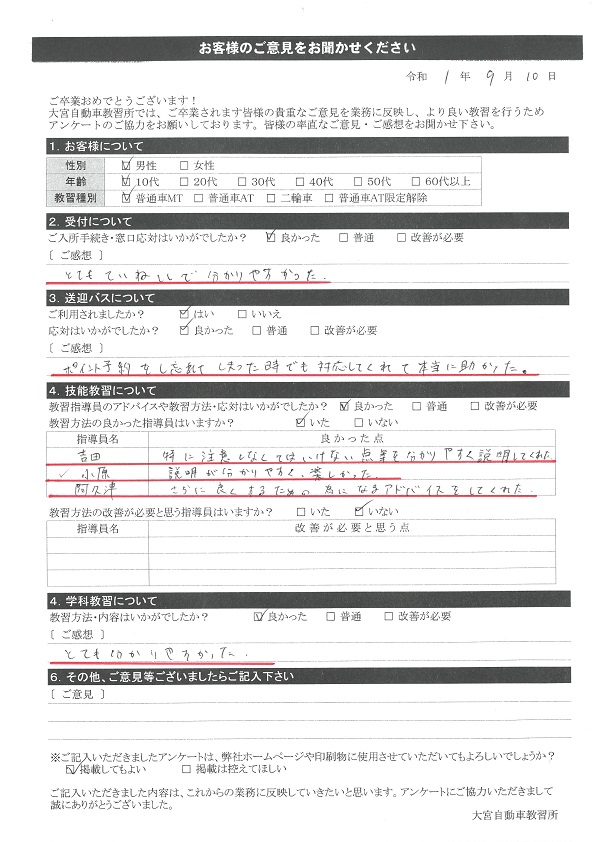 お客様のご意見をお聞かせください
令和 1 年 9 月 10 日
ご卒業おめでとうございます！
大宮自動車教習所では、ご卒業されます皆様の貴重なご意見を業務に反映し、より良い教習を行うため
アンケートのご協力をお願いしております。皆様の率直なご意見・ご感想をお聞かせ下さい。
1. お客様について
性別 ☑ 男性 □ 女性
年齢 ☑ 10代 □ 20代 □ 30代 □ 40代 □ 50代 □ 60代以上
教習種別 ☑ 普通車MT □ 普通車AT □ 二輪車 □ 普通車AT限定解除
2. 受付について
ご入所手続き・窓口応対はいかがでしたか？ ☑ 良かった □ 普通 □ 改善が必要
〔 ご感想 〕
とてもていねいで分かりやすかった.
3. 送迎バスについて
ご利用されましたか？ ☑ はい □ いいえ
応対はいかがでしたか？ ☑ 良かった □ 普通 □ 改善が必要
〔 ご感想 〕
ポイント予約をし忘れてしまった時でも対応してくれて本当に助かった。
4. 技能教習について
教習指導員のアドバイスや教習方法・応対はいかがでしたか？ ☑ 良かった □ 普通 □ 改善が必要
教習方法の良かった指導員はいますか？ ☑ いた □ いない
指導員名 良かった点
吉田 特に注意しなくてはいけない点等を分かりやすく説明してくれた
✓ 小原 説明が分かりやすく、楽しかった.
阿久津 さらに良くするための為になるアドバイスをしてくれた.
教習方法の改善が必要と思う指導員はいますか？ □ いた ☑ いない
指導員名 改善が必要と思う点
4. 学科教習について
教習方法・内容はいかがでしたか？ ☑ 良かった □ 普通 □ 改善が必要
〔 ご感想 〕
とても分かりやすかった.
6. その他、ご意見等ございましたらご記入下さい
〔 ご意見 〕
※ご記入いただきましたアンケートは、弊社ホームページや印刷物に使用させていただいてもよろしいでしょうか？
☑ 掲載してもよい □ 掲載は控えてほしい
ご記入いただきました内容は、これからの業務に反映していきたいと思います。アンケートにご協力いただきまして
誠にありがとうございました。
大宮自動車教習所